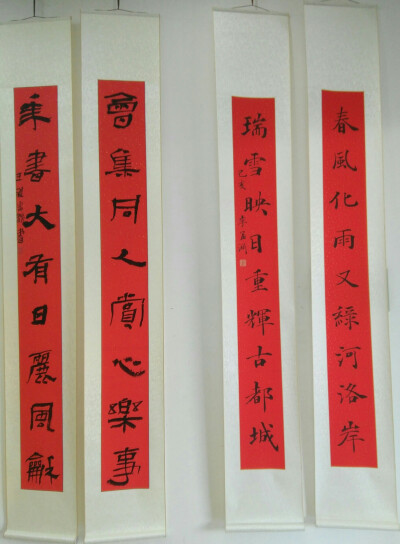 春風化雨又綠河洛岸
瑞雪映日重輝古都城
己亥
會集同人賞心樂事
年書大有日麗風龢